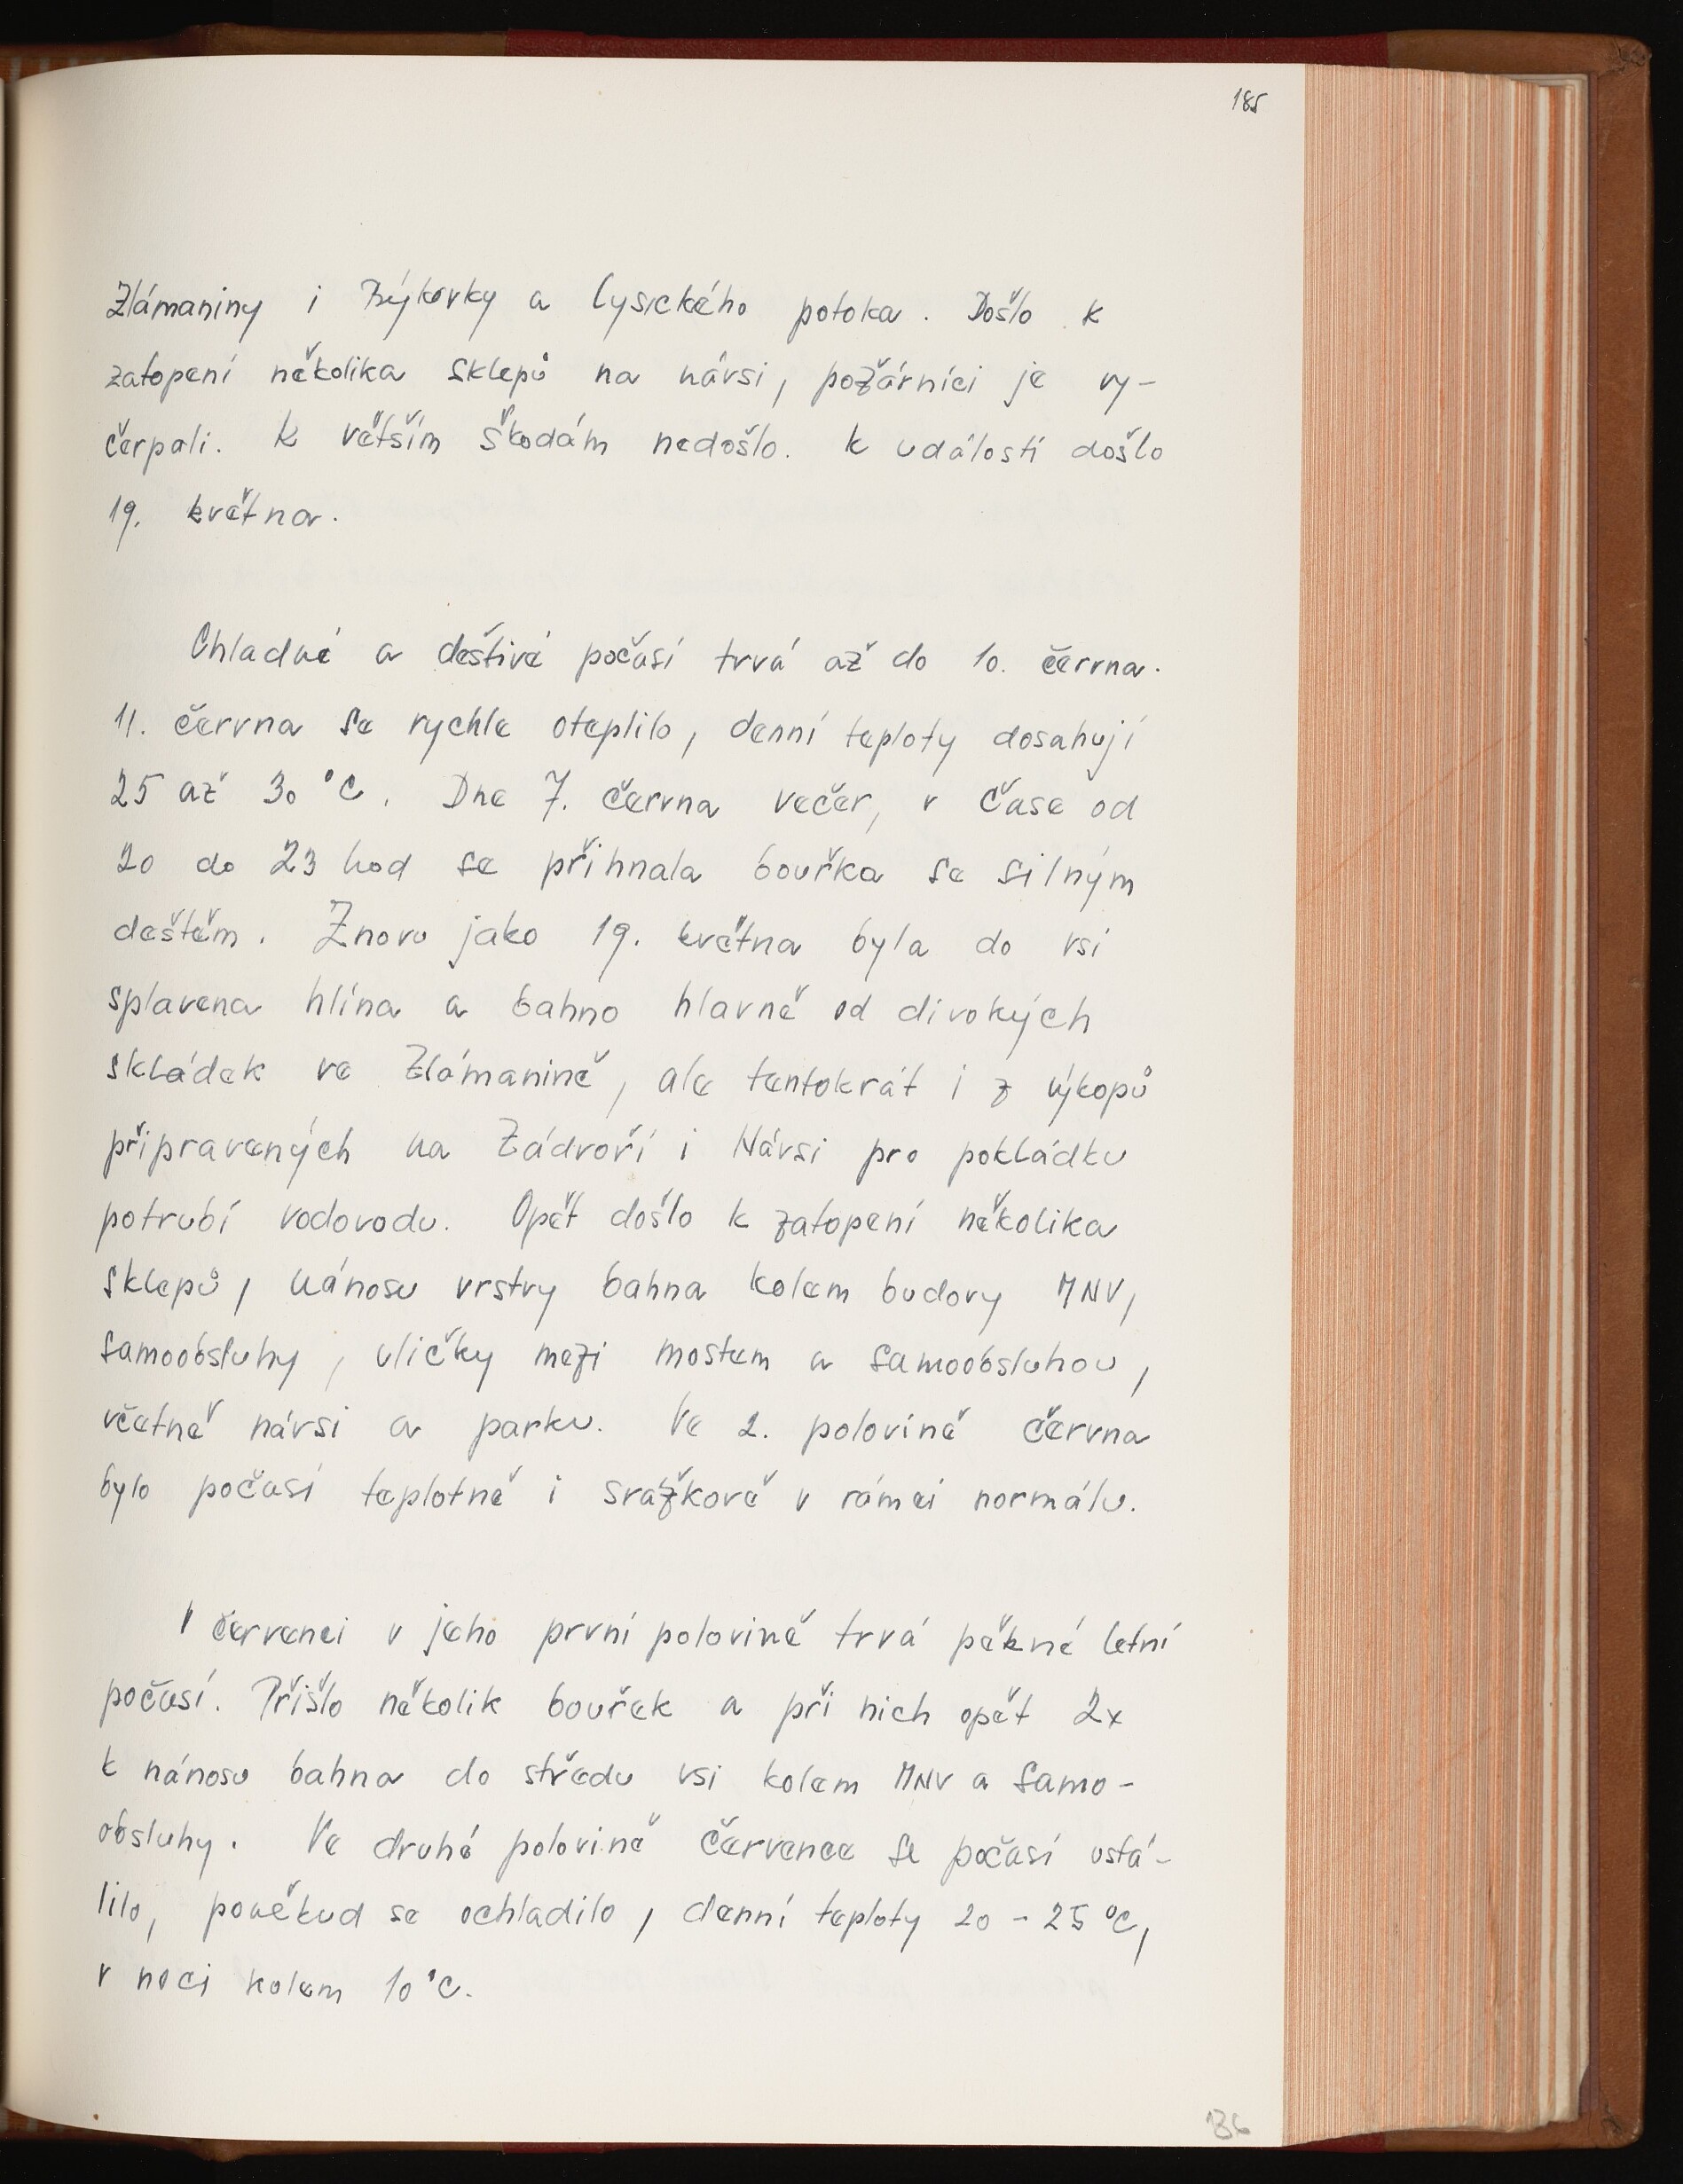 185
Zlámaniny i Býkovky a Lysického potoka. Došlo k
zatopení několika sklepů na návsi, požárníci je vy-
čerpali. K větším škodám nedošlo. K události došlo
19. května.
Chladné a deštivé počasí trvá až do 10. června.
11. června se rychle oteplilo, denní teploty dosahují
25 až 30 °C. Dne 7. června večer, v čase od
20 do 23 hod se přihnala bouřka se silným
deštěm. Znovu jako 19. května byla do vsi
splavena hlína a bahno hlavně od divokých
skládek ve Zlámanině, ale tentokrát i z výkopů
připravených na Zádvoří i Návsi pro pokládku
potrubí vodovodu. Opět došlo k zatopení několika
sklepů, nánosu vrstvy bahna kolem budovy MNV,
samoobsluhy, uličky mezi mostem a samoobsluhou,
včetně návsi a parku. Ve 2. polovině června
bylo počasí teplotně i srážkově v rámci normálu.
V červenci v jeho první polovině trvá pěkné letní
počasí. Přišlo několik bouřek a při nich opět 2x
k nánosu bahna do středu vsi kolem MNV a samo-
obsluhy. Ve druhé polovině července se počasí ustá-
lilo, poněkud se ochladilo, denní teploty 20 - 25 °C,
v noci kolem 10 °C.